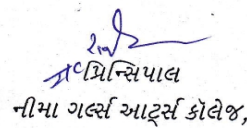 પ્રિન્સિપાલ
નીમા ગર્લ્સ આર્ટ્સ કૉલેજ,